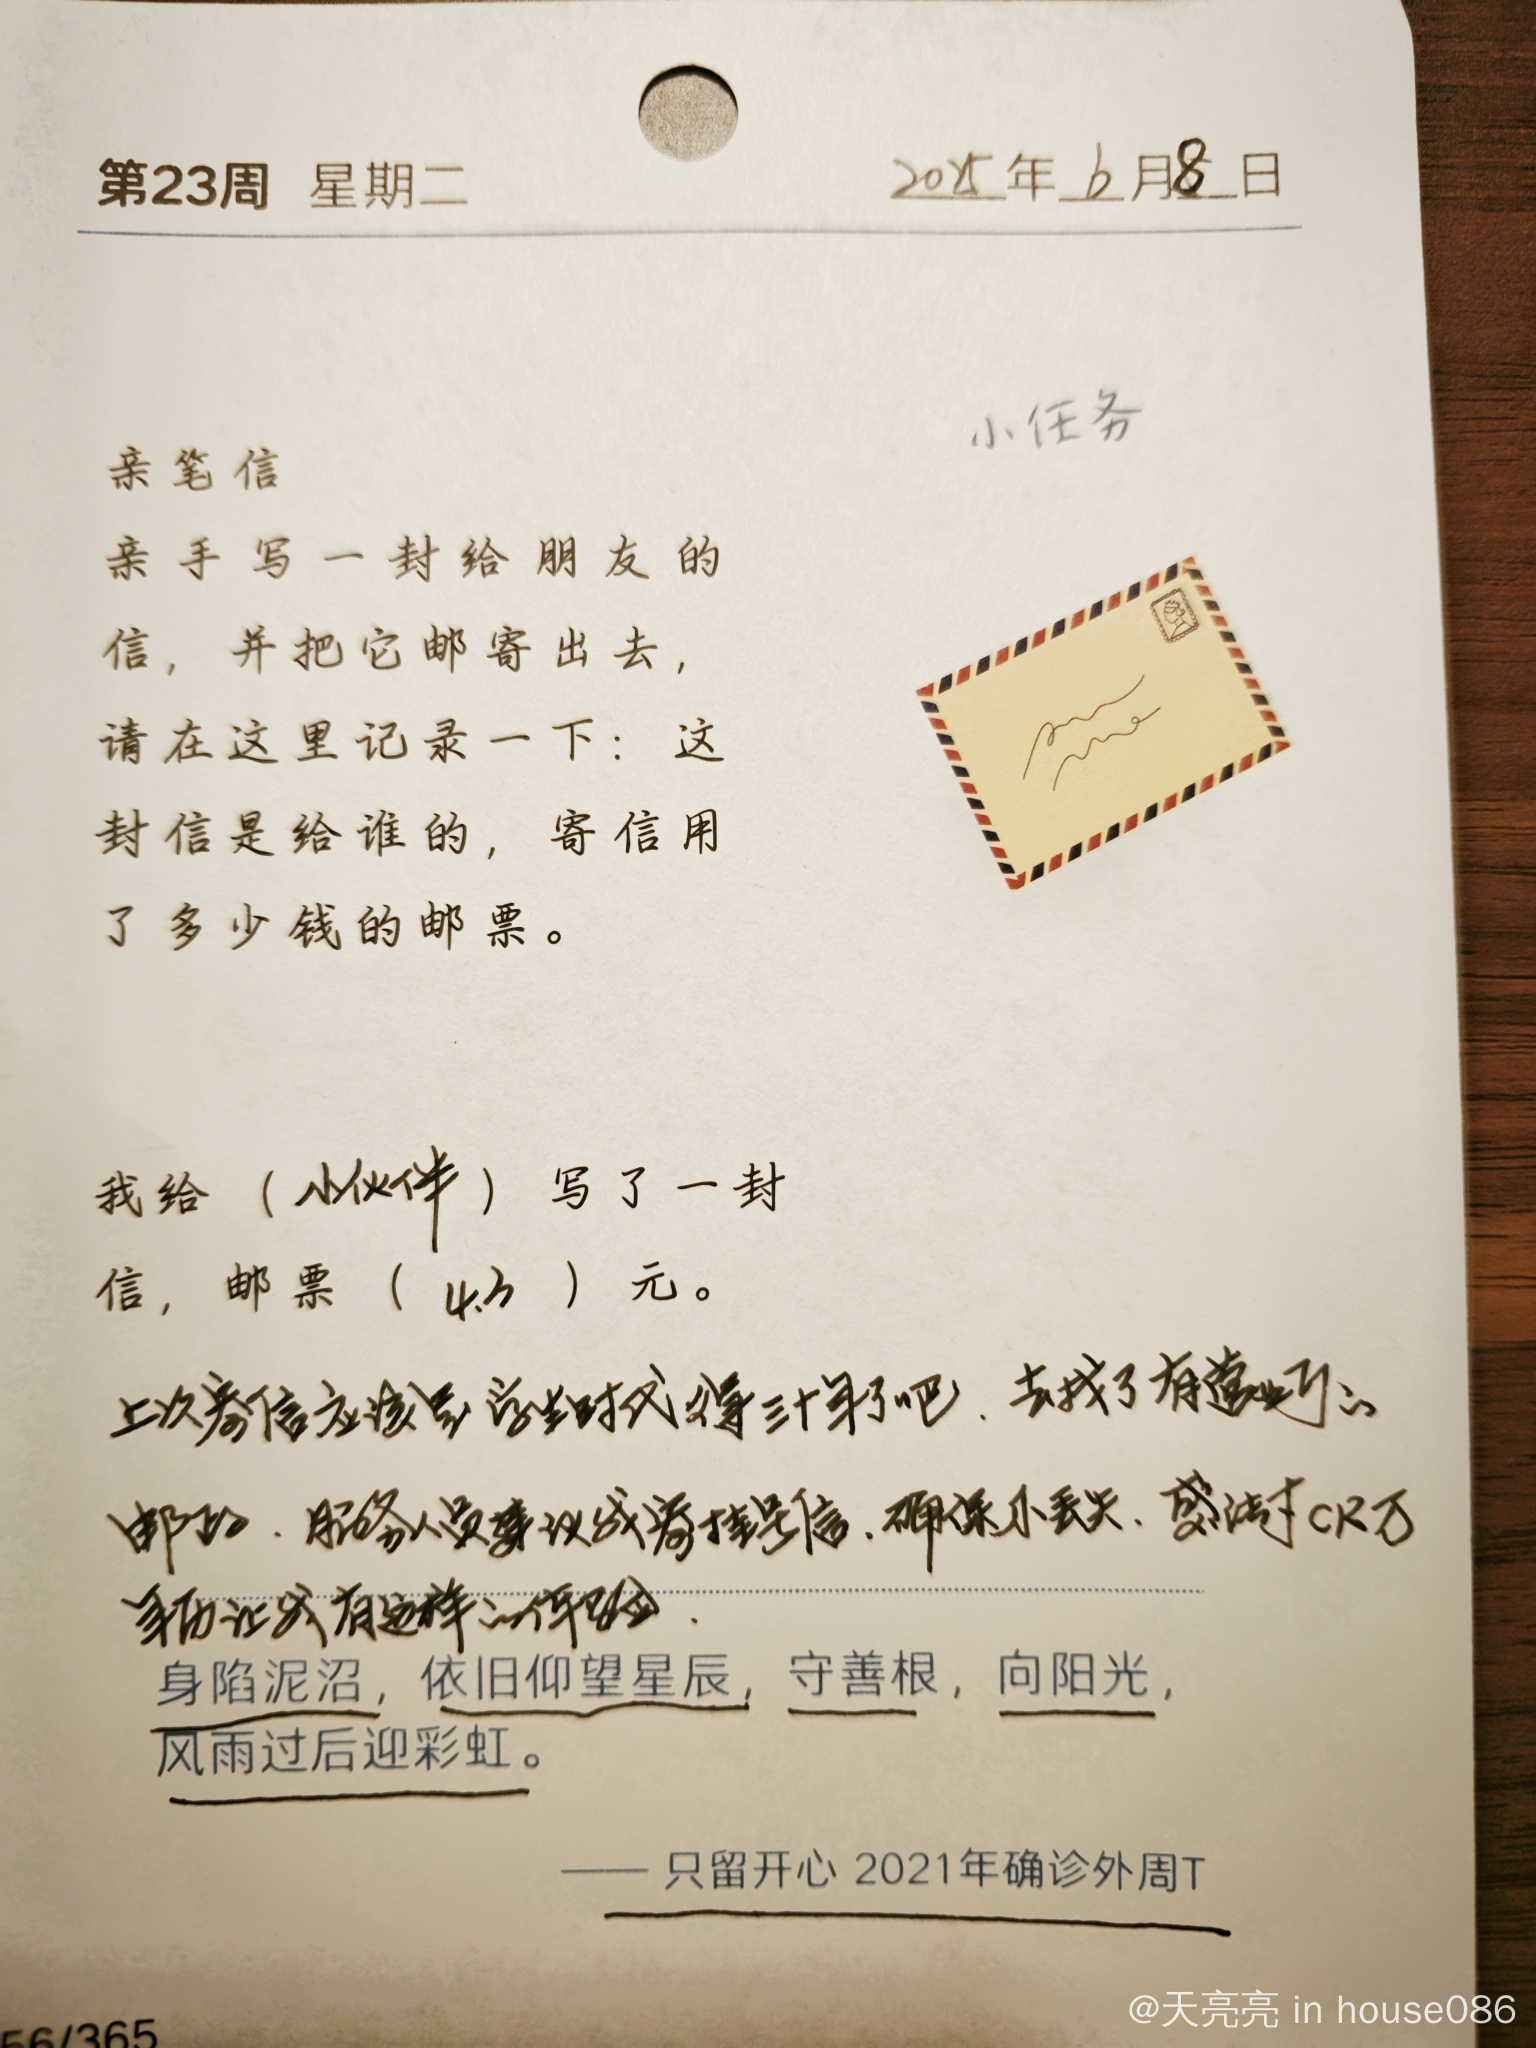 第23周 星期二 2025年6月8日
小任务
亲笔信
亲手写一封给朋友的
信，并把它邮寄出去，
请在这里记录一下：这
封信是给谁的，寄信用
了多少钱的邮票。
我给（小伙伴）写了一封
信，邮票（4.5）元。
上次寄信应该是学生时代得三十年了吧．去找了有营业厅的
邮局．服务人员建议我寄挂号信．确保不丢失．感谢CR万
年历让我有这样的体验．
身陷泥沼，依旧仰望星辰，守善根，向阳光，
风雨过后迎彩虹。
—— 只留开心 2021年确诊外周T
56/365
@天亮亮 in house086